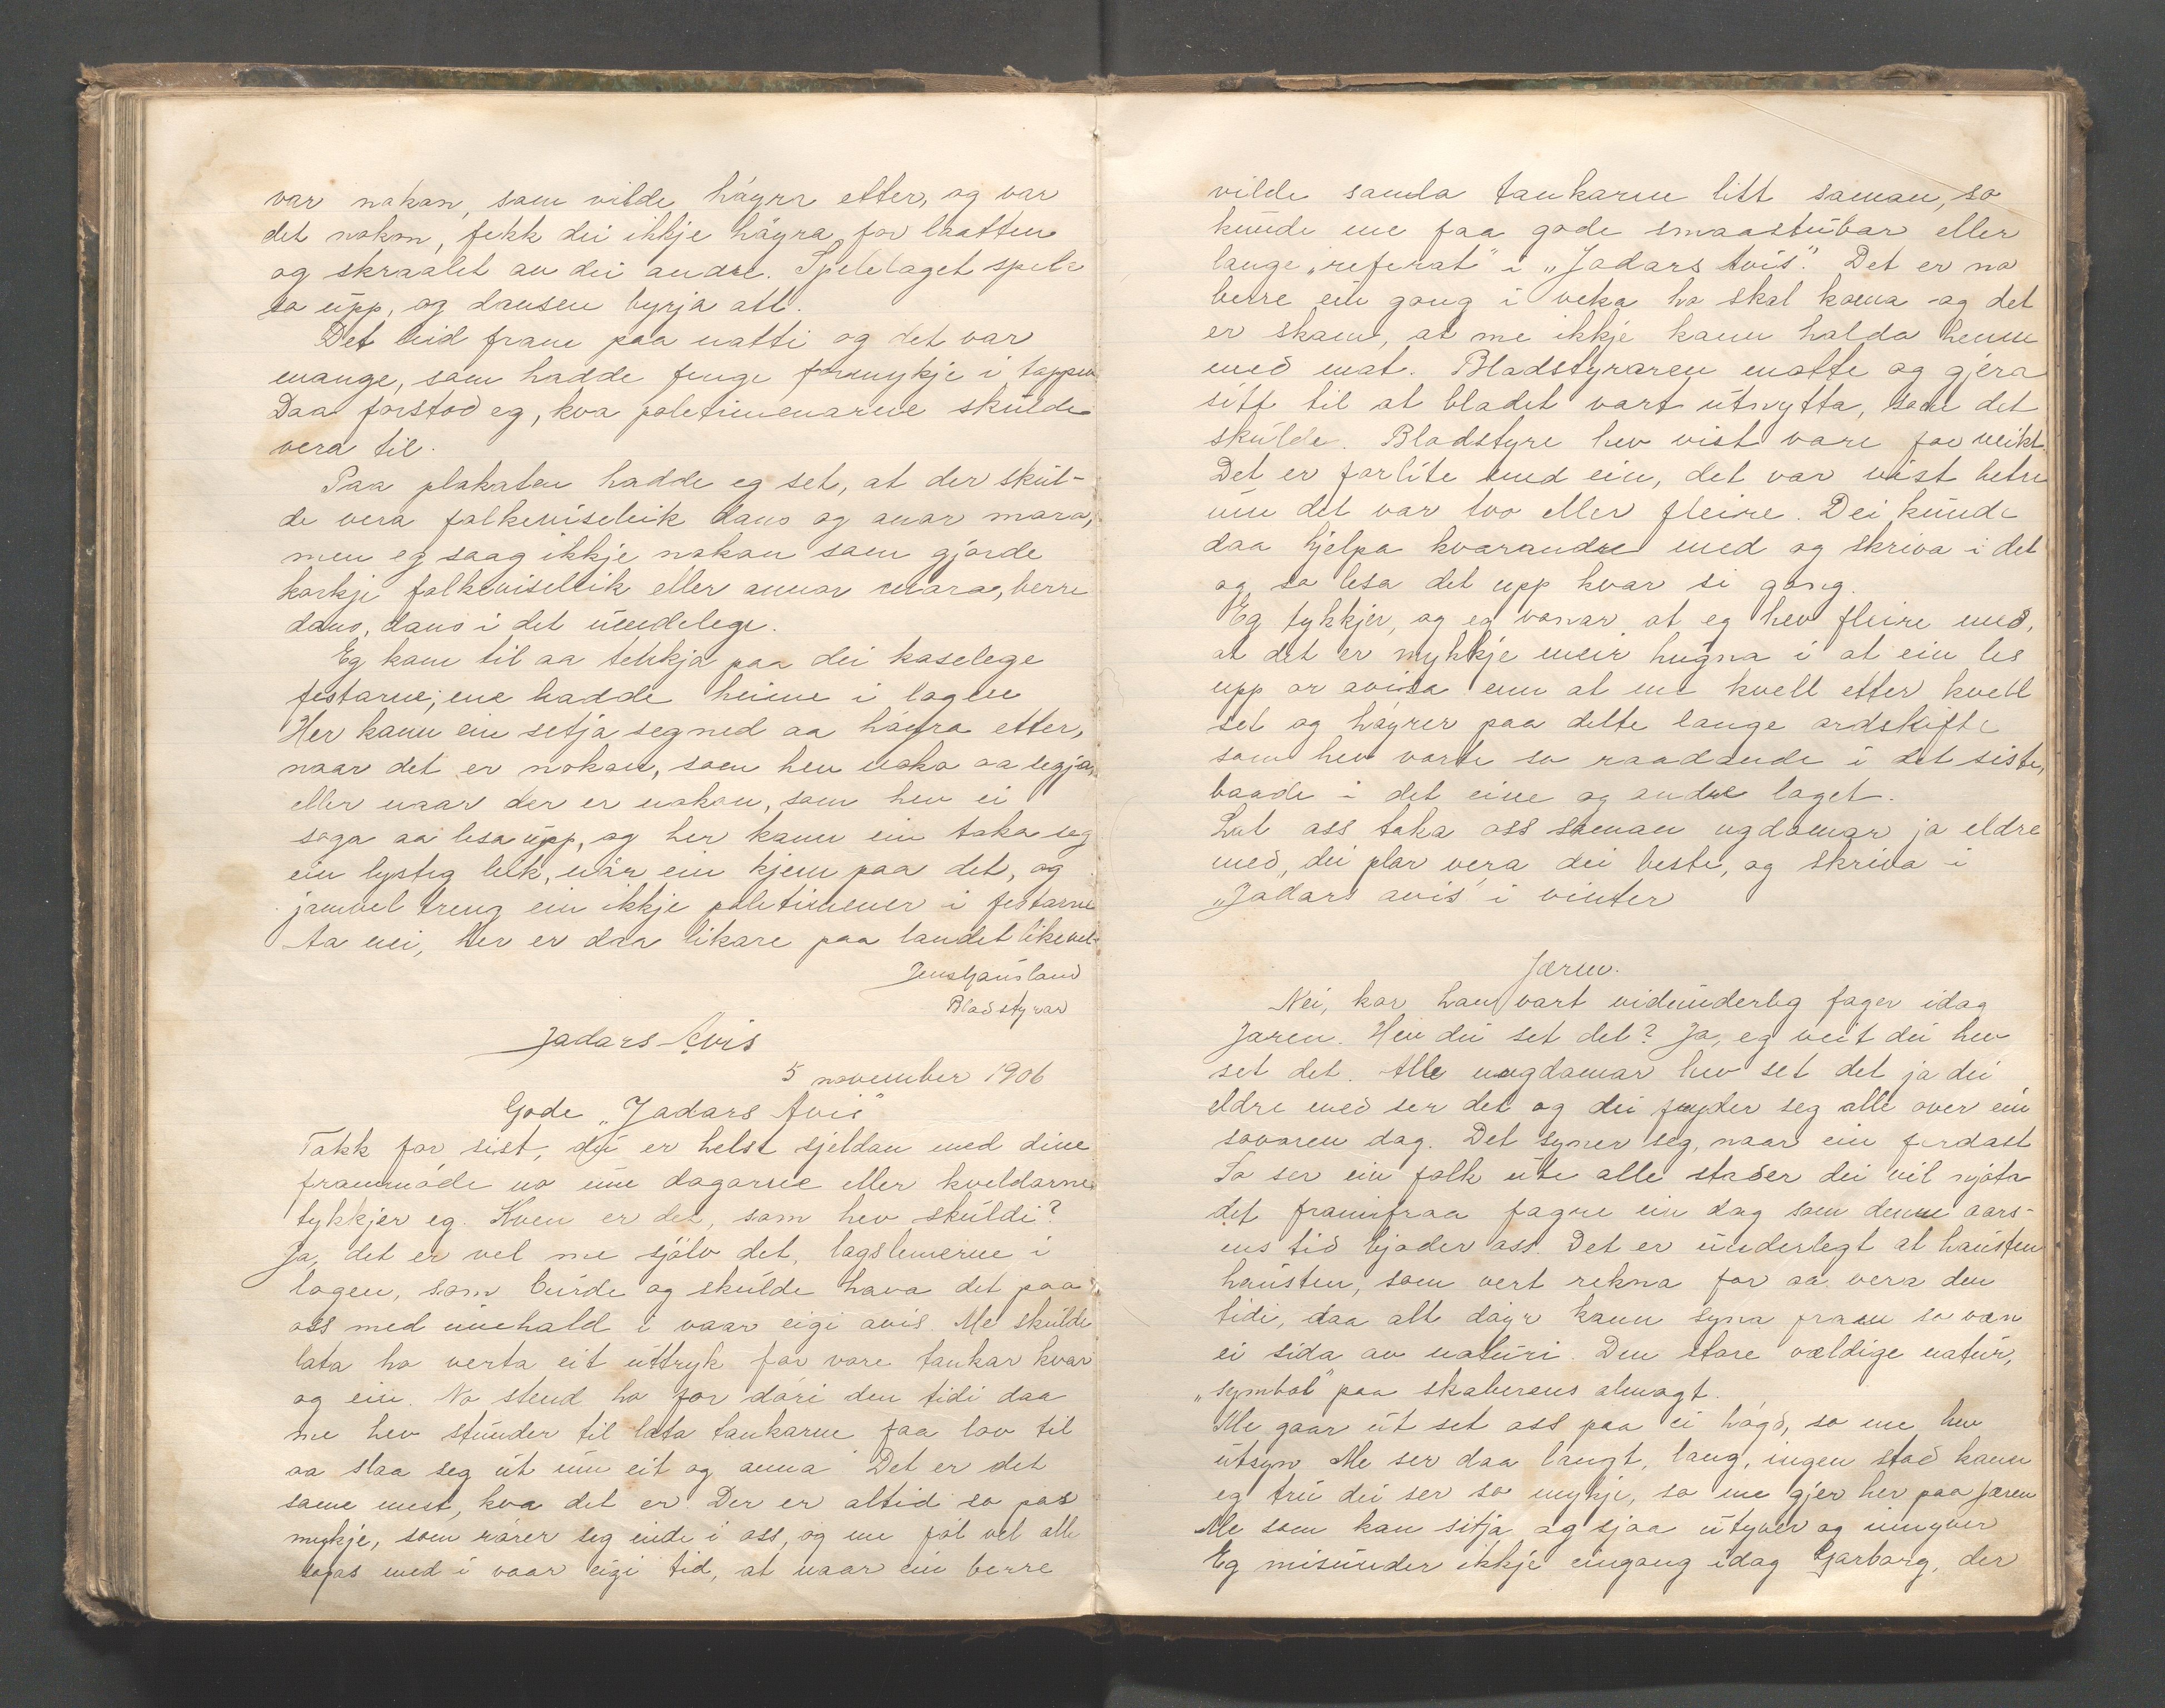 var nokan, som vilde høyra etter, og var
det nokon, fekk dei ikkje høyra for laatten
og skraalet av dei andre. Spelelaget spela
so upp, og dansen byrja att.
Det leid fram paa natti og det var
mange, som hadde fenge formykje i toppen
Daa forstod eg, kva poletimenarne skulde
vera til.
Paa plakaten hadde eg set, at der skul-
de vera folkeviseleik dans og anar moro,
men eg saag ikkje nokon som gjorde
korkje folkeviseleik eller annar moro, berre
dans, dans i det uendelege.
Eg kom til aa tenkja paa dei koselege
festarne, me hadde heime i lagen
Her kann ein setja seg ned aa høyra etter,
naar det er nokon, som hev noko aa segja,
eller naar der er nokon, som hev ei
soga aa lesa upp, og her kann ein taka seg
ein lysteg leik, når ein kjem paa det, og
jamvel treng ein ikkje poletimener i festarne
Aa nei, her er daa likare paa landet likevel.
Jens Hausland
Bladstyrar
Jadars Avis
5 november 1906
Gode "Jadars Avis"
Takk for sist, du er helst sjeldan med dine
frammøde no um dagarne eller kveldarne
tykkjer eg. Kven er det, som hev skuldi?
Ja, det er vel me sjølv det, lagslemerne i
lagen, som burde og skulde hava det paa
oss med innehald i vaar eigi avis. Me skulde
lata ho verta eit uttryk for vore tankar kvar
og ein. No stend ho for døri den tidi daa
me hev stunder til lata tankarne faa lov til
aa slaa seg ut um eit og anna. Det er det
same mest, kva det er. Der er altid so pas
mykje, som rører seg inde i oss, og me føl vel alle
sopas med i vaar eigi tid, at naar ein berre
vilde samla tankarne litt saman, so
kunde me faa gode smaastubar eller
lange "referat" i "Jadars Avis". Det er no
berre ein gong i veka ho skal koma og det
er skam, at me ikkje kann halda henne
med mat. Bladstyraren matte og gjera
sitt til at bladet vart utnytta, som det
skulde. Bladstyre hev vist vore for veikt
Det er forlite med ein, det var vist betre
um det var tvo eller fleire. Dei kunde
daa hjelpa kvarandre med og skriva i det
og so lesa det upp kvar si gong.
Eg tykkjer, og eg vonar at eg hev fleire med,
at det er mykkje meir hugna i at ein les
upp or avisa enn at me kvell etter kvell
set og høyrer paa dette lange ordskifte
som hev vorte so raadande i det siste,
baade i det eine og andre laget.
Lat oss taka oss saman ugdomar ja eldre
med, dei plar vera dei beste, og skriva i
"Jadars avis" i vinter
Jæren.
Nei, kor han vart vidunderleg fager idag
Jæren. Hev dei set det? Ja, eg veit dei hev
set det. Alle ungdomar hev set det ja dei
eldre med ser det og dei frygder seg alle over ein
sovoren dag. Det syner seg, naar ein ferdast
So ser ein folk ute alle stader dei vil njota
det framifraa fagre ein dag som denne aars-
ens tid bjoder oss. Det er underlegt at hausten
hausten, som vert rekna for aa vera den
tidi, daa alt døyr kann syna fram so væn
ei sida av naturi. Den store vældige natur,
"symbol" paa skaberens almagt.
Me gaar ut set oss paa ei høgd, so me hev
utsyn. Me ser daa langt, lang, ingen stad kann
eg tru dei ser so mykje, so me gjer her paa Jæren
Me som kan sitja og sjaa utyver og innyver
Eg misunder ikkje eingong idag Garborg, der